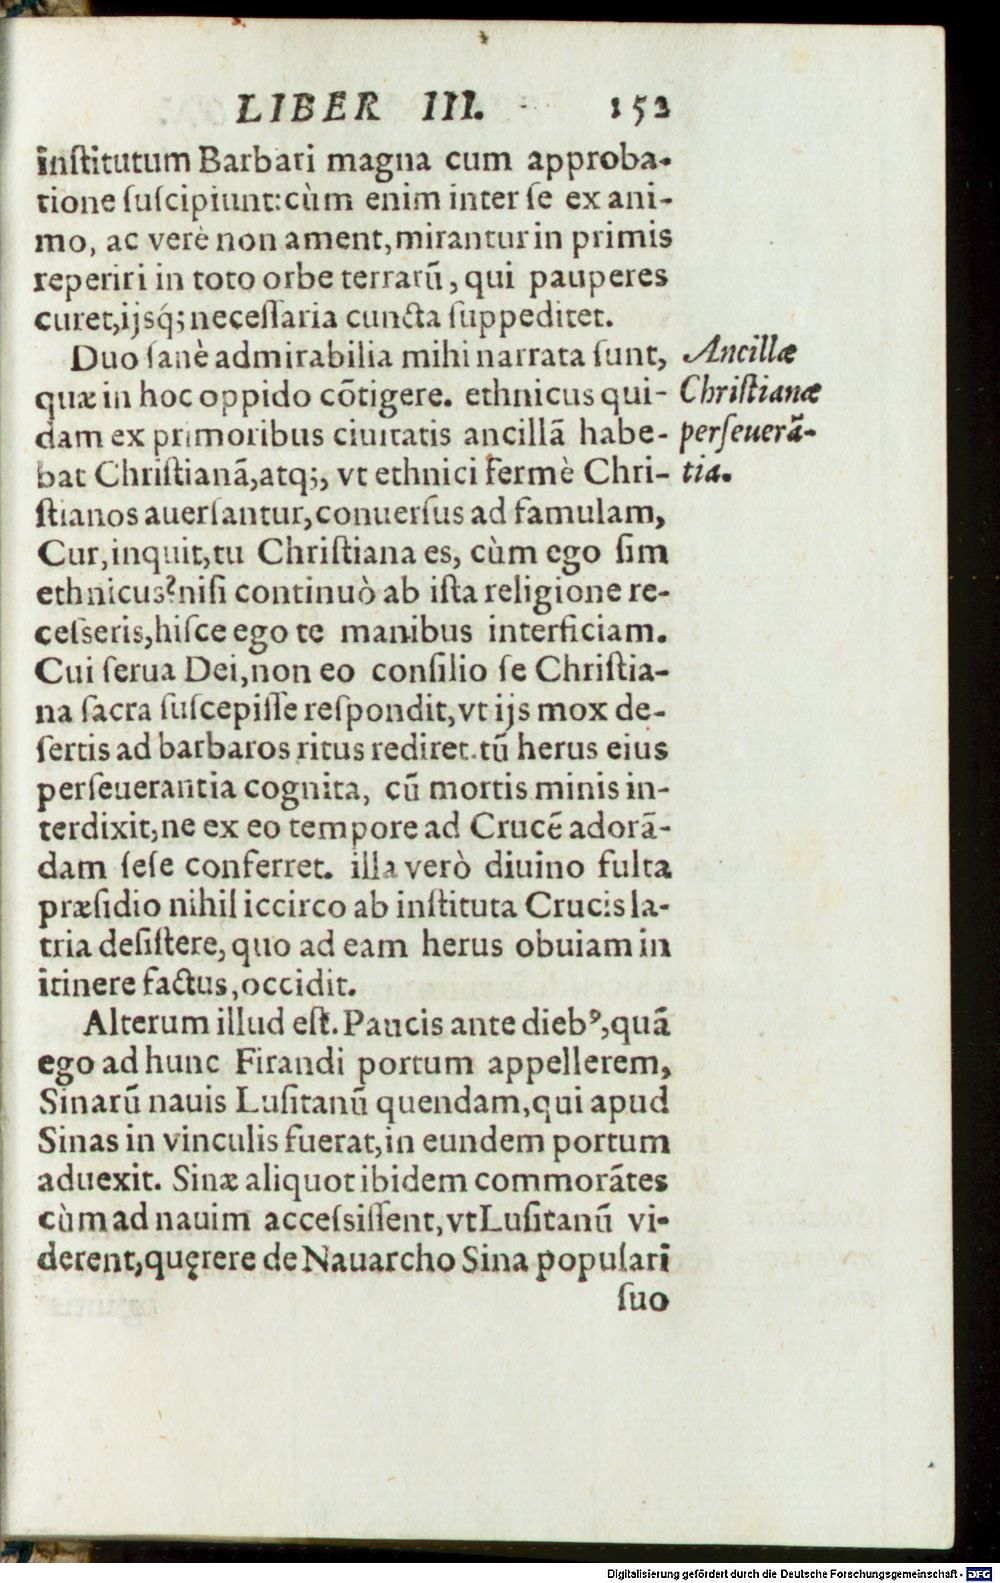 LIBER III. 152
inſtitutum Barbari magna cum approba-
tione ſuſcipiunt: cùm enim inter ſe ex ani-
mo, ac verè non ament, mirantur in primis
reperiri in toto orbe terrarũ, qui pauperes
curet, ijsq́; neceſſaria cuncta ſuppeditet.
Duo ſanè admirabilia mihi narrata ſunt,
quæ in hoc oppido cõtigere. ethnicus qui-
dam ex primoribus ciuitatis ancillã habe-
bat Chriſtianã, atq;, vt ethnici fermè Chri-
ſtianos auerſantur, conuerſus ad famulam,
Cur, inquit, tu Chriſtiana es, cùm ego ſim
ethnicus? niſi continuò ab iſta religione re-
ceſseris, hiſce ego te manibus interficiam.
Cui ſerua Dei, non eo conſilio ſe Chriſtia-
na ſacra ſuſcepiſſe reſpondit, vt ijs mox de-
ſertis ad barbaros ritus rediret. tũ herus eius
perſeuerantia cognita, cũ mortis minis in-
terdixit, ne ex eo tempore ad Crucẽ adorã-
dam ſeſe conferret. illa verò diuino fulta
præſidio nihil iccirco ab inſtituta Crucis la-
tria deſiſtere, quo ad eam herus obuiam in
itinere factus, occidit.
Ancillæ
Chriſtianæ
perſeuerã-
tia.
Alterum illud eſt. Paucis ante dieb⁹, quã
ego ad hunc Firandi portum appellerem,
Sinarũ nauis Luſitanũ quendam, qui apud
Sinas in vinculis fuerat, in eundem portum
aduexit. Sinæ aliquot ibidem commorãtes
cùm ad nauim acceſsiſſent, vt Luſitanũ vi-
derent, quęrere de Nauarcho Sina populari
ſuo
Digitalisierung gefördert durch die Deutsche Forschungsgemeinschaft - DFG